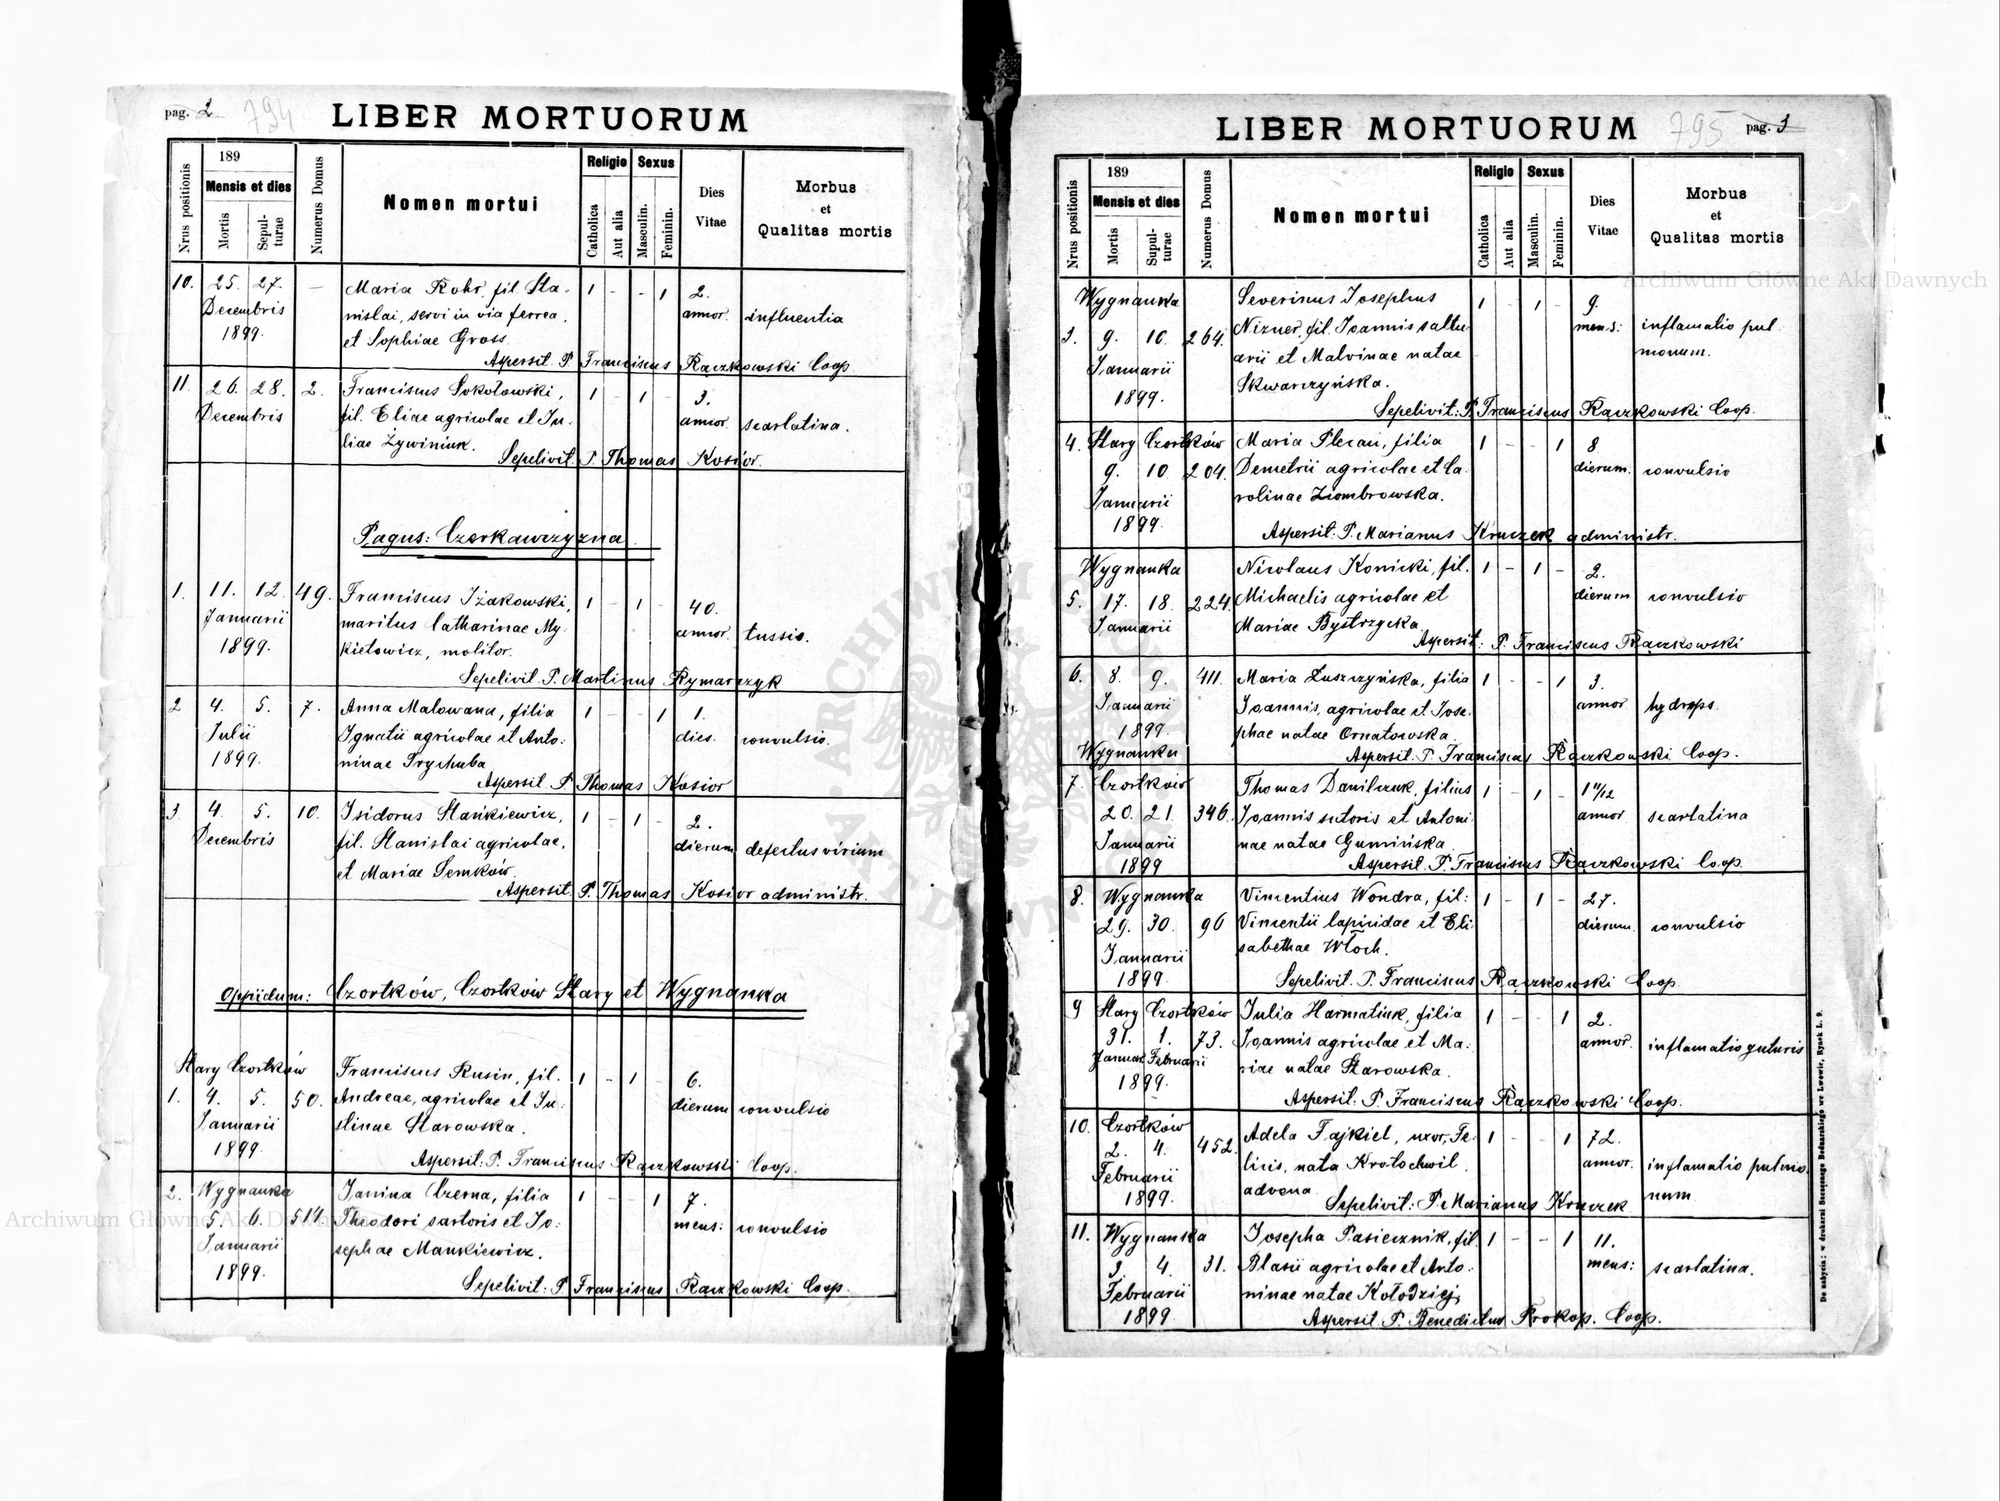 pag. 2 794
LIBER MORTUORUM
Nrus positionis
189
Mensis et dies
Mortis
Sepulturae
Numerus Domus
Nomen mortui
Religio
Catholica
Aut alia
Sexus
Masculin.
Feminin.
Dies Vitae
Morbus et Qualitas mortis
10. 25. 27. — Maria Rohr, fil. Sta- 1 - - 1 2.
Decembris nislai, servi in via ferrea, annor. influentia
1899. et Sophiae Gross.
Aspersit. P. Franciscus Raczkowski Coop.
11. 26. 28. 2. Franciscus Sokołowski, 1 - 1 - 3.
Decembris fil. Eliae agricolae et Ju- annor. scarlatina.
liae Żywiniuk.
Sepelivit. P. Thomas Kosior.
Pagus: Czerkawczyzna.
1. 11. 12. 49. Franciscus Iżakowski, 1 - 1 - 40.
Januarii maritus Catharinae My- annor. tussis.
1899. kietowicz, molitor.
Sepelivit P. Martinus Rymarczyk
2 4. 5. 7. Anna Malowana, filia 1 - - 1 1.
Julii Ignatii agricolae et Anto- dies. convulsio.
1899. ninae Trychuba
Aspersit P. Thomas Kosior
3 4. 5. 10. Isidorus Stańkiewicz, 1 - 1 - 2.
Decembris fil. Stanislai agricolae, dierum defectus virium
et Mariae Semków.
Aspersit. P. Thomas Kosior administr.
Oppidum: Czortków, Czortków Stary et Wygnanka
Stary Czortków Franciscus Rusin, fil. 1 - 1 - 6.
1. 4. 5. 50. Andreae, agricolae et Ju- dierum convulsio
Januarii stinae Starowska.
1899.
Aspersit: P. Franciscus Raczkowski Coop.
2. Wygnanka Janina Czerna, filia 1 - - 1 7.
5. 6. 514. Theodori sartoris et Jo- mens: convulsio
Januarii sephae Mankiewicz.
1899.
Sepelivit: P. Franciscus Raczkowski Coop.
LIBER MORTUORUM
795 pag. 3
Nrus positionis
189
Mensis et dies
Mortis
Sepulturae
Numerus Domus
Nomen mortui
Religio
Catholica
Aut alia
Sexus
Masculin.
Feminin.
Dies Vitae
Morbus et Qualitas mortis
Wygnanka Severinus Josephus 1 - 1 - 9.
3. 9. 10. 264. Nizner, fil. Joannis saltu- mens: inflamatio pul
Januarii arii et Malvinae natae monum.
1899. Skwarczyńska.
Sepelivit: P. Franciscus Raczkowski Coop.
4. Stary Czortków Maria Plecan, filia 1 - - 1 8
9. 10 204. Demetrii agricolae et Ca- dierum. convulsio
Januarii rolinae Ziombrowska.
1899.
Aspersit: P. Marianus Kruczek administr.
Wygnanka Nicolaus Konicki, fil. 1 - 1 - 2.
5. 17. 18. 224. Michaelis agricolae et dierum convulsio
Januarii Mariae Bystrzycka
Aspersit: P. Franciscus Raczkowski
6. 8. 9. 411. Maria Łuszczyńska, filia 1 - - 1 3.
Januarii Joannis, agricolae et Jose- annor hydrops.
1899. phae natae Ornatowska.
Wygnanka Aspersit. P. Franciscus Raczkowski Coop.
7. Czortków Thomas Danilczuk, filius 1 - 1 - 1 11/12
20. 21. 346. Joannis sutoris et Antoni- annor scarlatina
Januarii nae natae Gumińska
1899 Aspersit. P. Franciscus Raczkowski Coop.
8. Wygnanka Vincentius Wondra, fil: 1 - 1 - 27.
29. 30. 96 Vincentii lapicidae et Eli- dierum. convulsio
Januarii sabethae Włoch.
1899. Sepelivit. P. Franciscus Raczkowski Coop
9 Stary Czortków Julia Harmatiuk, filia 1 - - 1 2.
31. 1. 73. Joannis agricolae et Ma- annor. inflamatio guturis
Januar. Februarii riae natae Starowska.
1899.
Aspersit: P. Franciscus Raczkowski Coop.
10. Czortków Adela Fajkiel, uxor, Fe- 1 - - 1 72.
2. 4. 452. licis, nata Krotochwil. annor. inflamatio pulmo
Februarii advena num
1899. Sepelivit: P. Marianus Kruczek
11. Wygnanka Josepha Pasiecznik, fil. 1 - - 1 11.
3. 4. 31. Blasii agricolae et Anto- mens: scarlatina.
Februarii ninae natae Kołodziej,
1899 Aspersit P. Benedictus Prokop. Coop.
Do nabycia: w drukarni Szczęsnego Bednarskiego we Lwowie, Rynek L. 9.
Archiwum Główne Akt Dawnych
Archiwum Główne Akt Dawnych